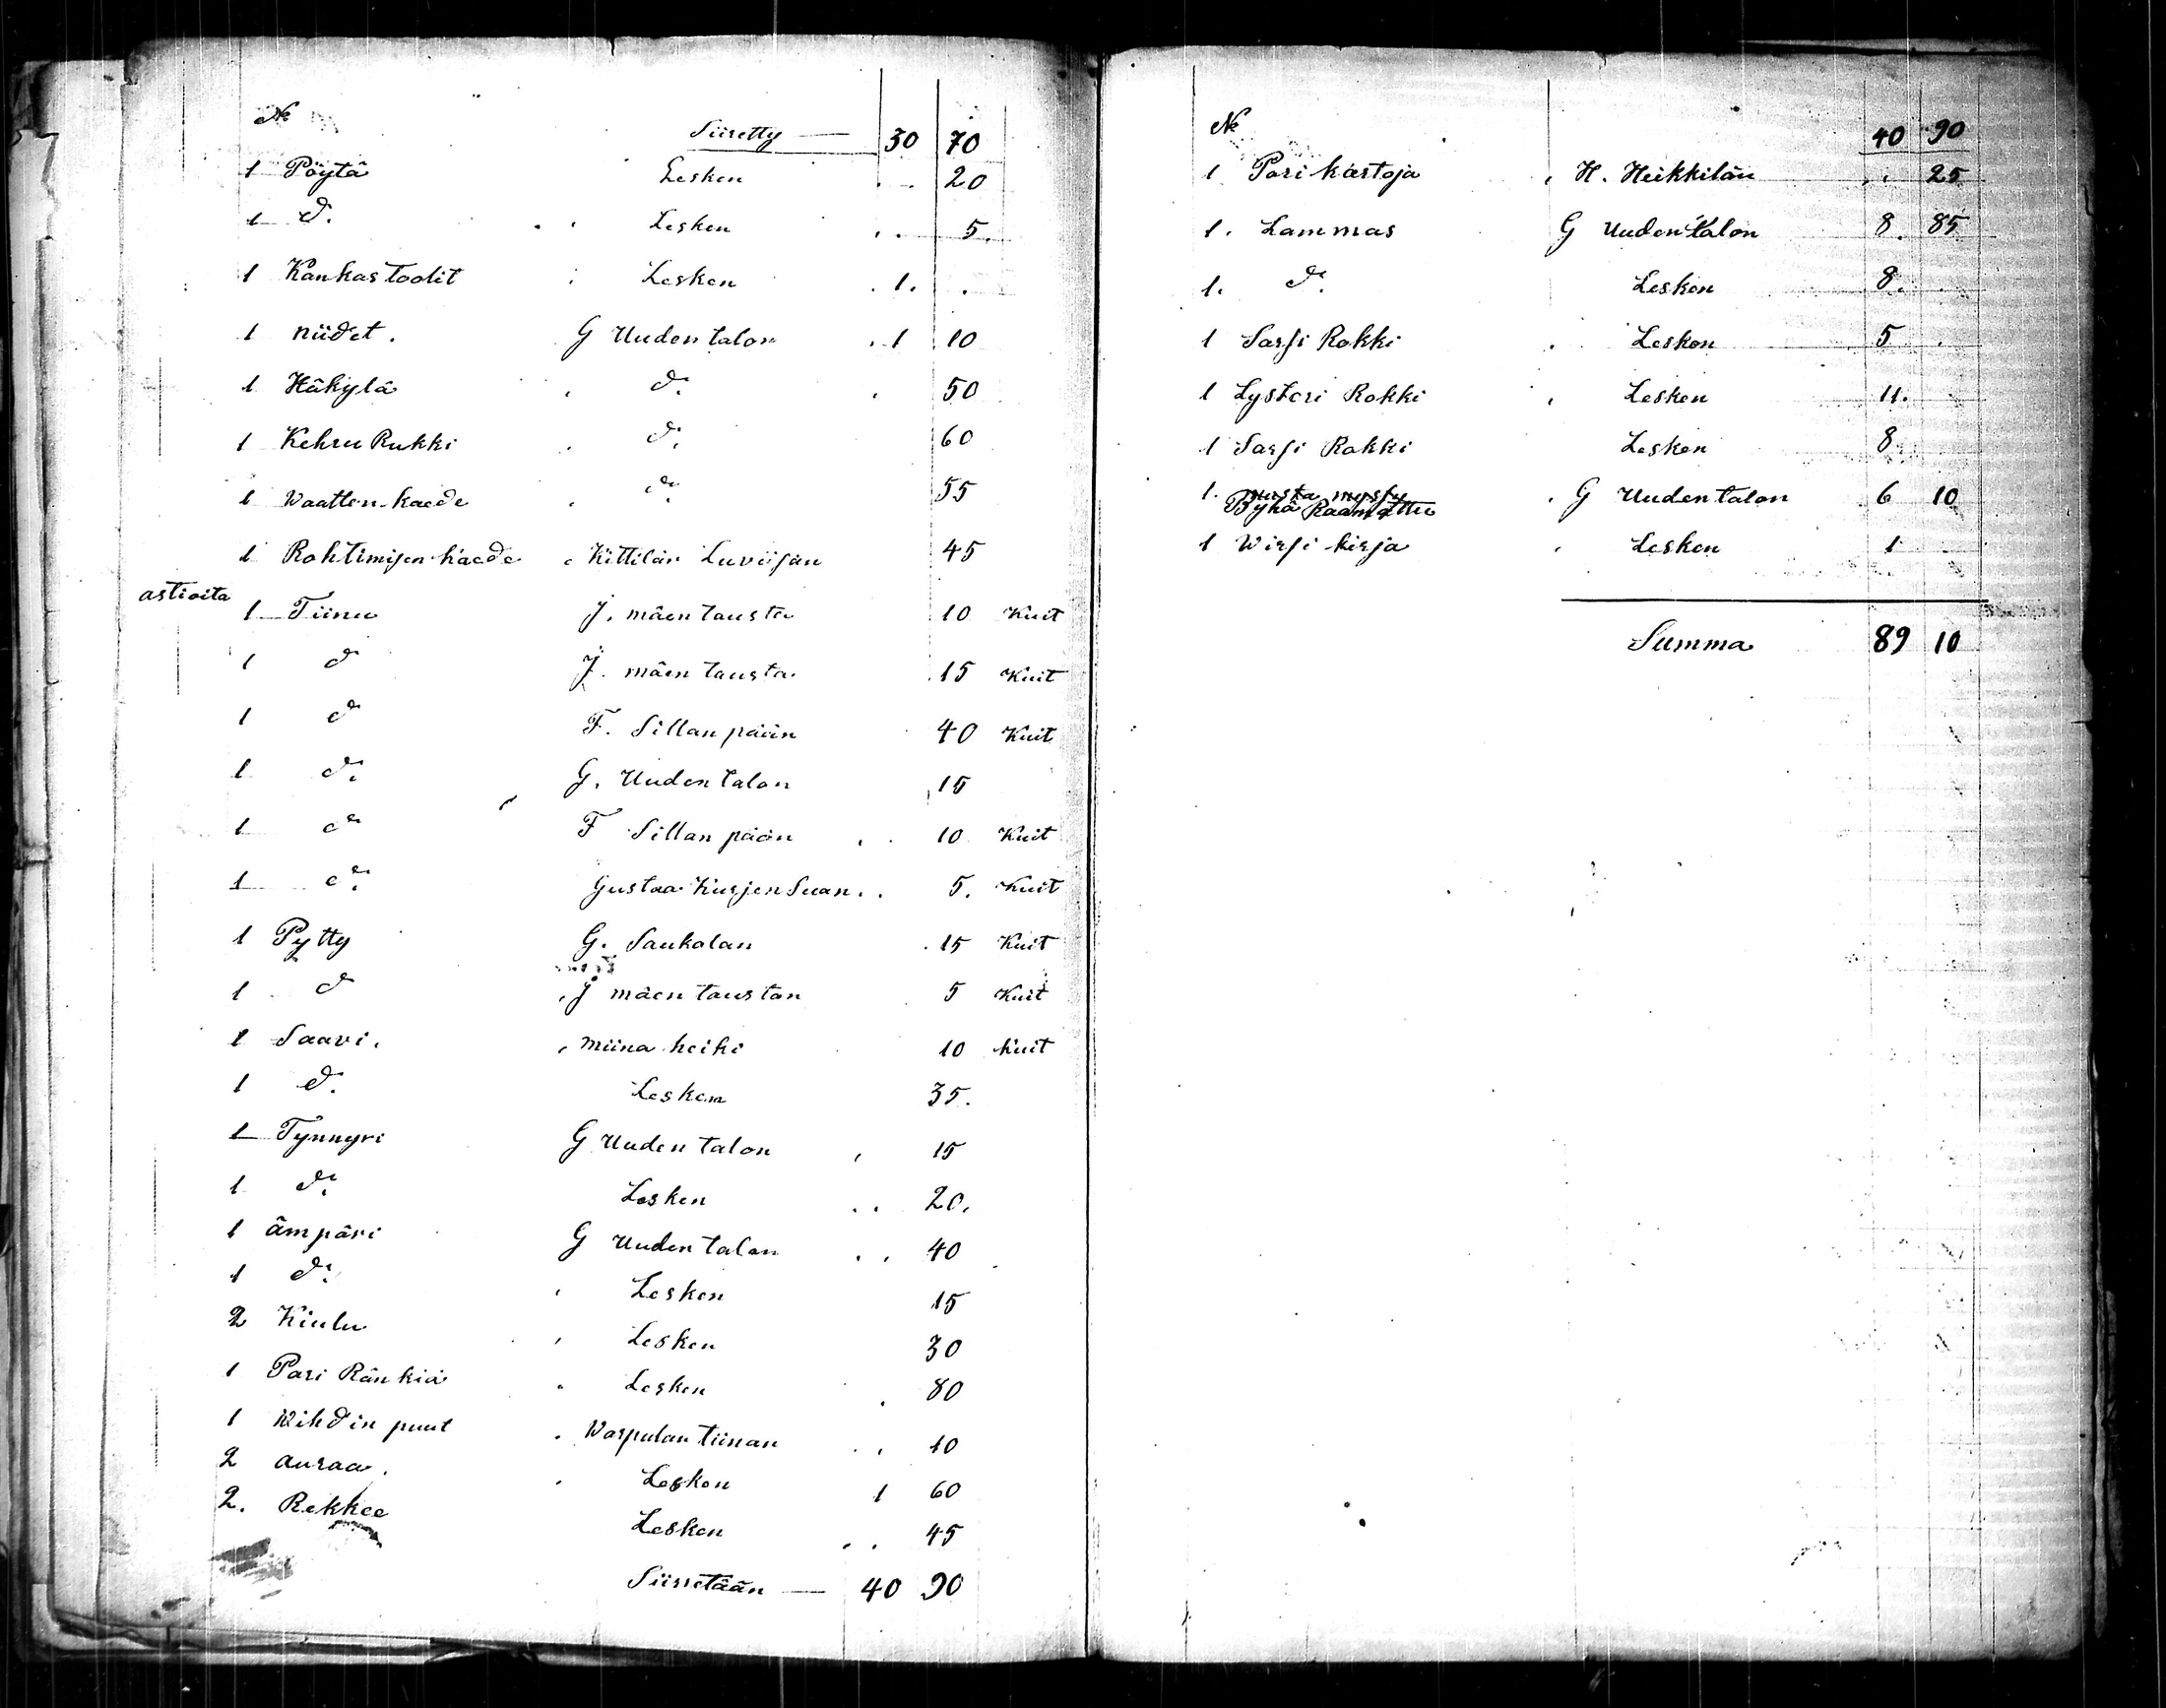 No Siiretty — 30 70
1 Pöytä Lesken 20
1 do. Lesken 5.
1 Kankastoolit Lesken 1.
1 niidet. G Uuden talon 1 10
1 Häkylä do. 50
1 Kehru Rukki do. 60
1 Waatten kaede do. 55
1 Rohtimisen kaede Kittilän Luviisan 45
astioita
1 Tiinu J. mäen tausta 10 Kuit
1 do J. mäen tausta. 15 Kuit
1 do F. Sillanpään 40 Kuit
1 do. G. Uuden talon 15
1 do F Sillan pään 10 Kuit
1 do. Gustaa Kurjen Suan.. 5. Kuit
1 Pytty G. Saukolan 15 Kuit
1 do J mäen taustan 5 Kuit
1 Saavi. miina heiki 10 Kuit
1 do. Lesken 35.
1 Tynnyri G Uuden talon 15
1 do. Lesken 20.
1 ämpäri G Uuden talon 40
1 do. Lesken 15
2 Kiulu Lesken 30
1 Pari Ränkiä Lesken 80
1 Wihdin puut Warpulan tiinan 10
2 auraa. Lesken 1 60
2. Rekkee Lesken 45
Siirretään — 40 90
No 40 90
1 Pari karstoja H. Heikkilän 25
1. Lammas G Uuden talon 8. 85
1. do. Lesken 8.
1 Sarsi Rokki Lesken 5
1 Lysteri Rokki Lesken 11.
1 Sarsi Rokki Lesken 8
1. Pyhä Raamattu G Uuden talon 6 10
1 Wirsi kirja Lesken 1
Summa 89 10